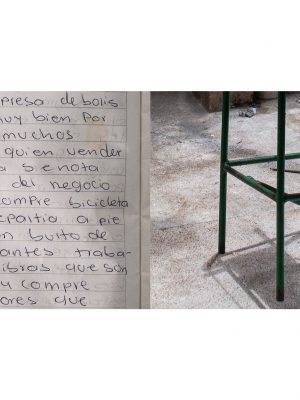 presa de bolis
muy bien Por
muchos
quien vender
a se nota
del negocio
compre bicicleta
epartia a pie
n burto de
antes traba-
ibras que son
y compre
ores que